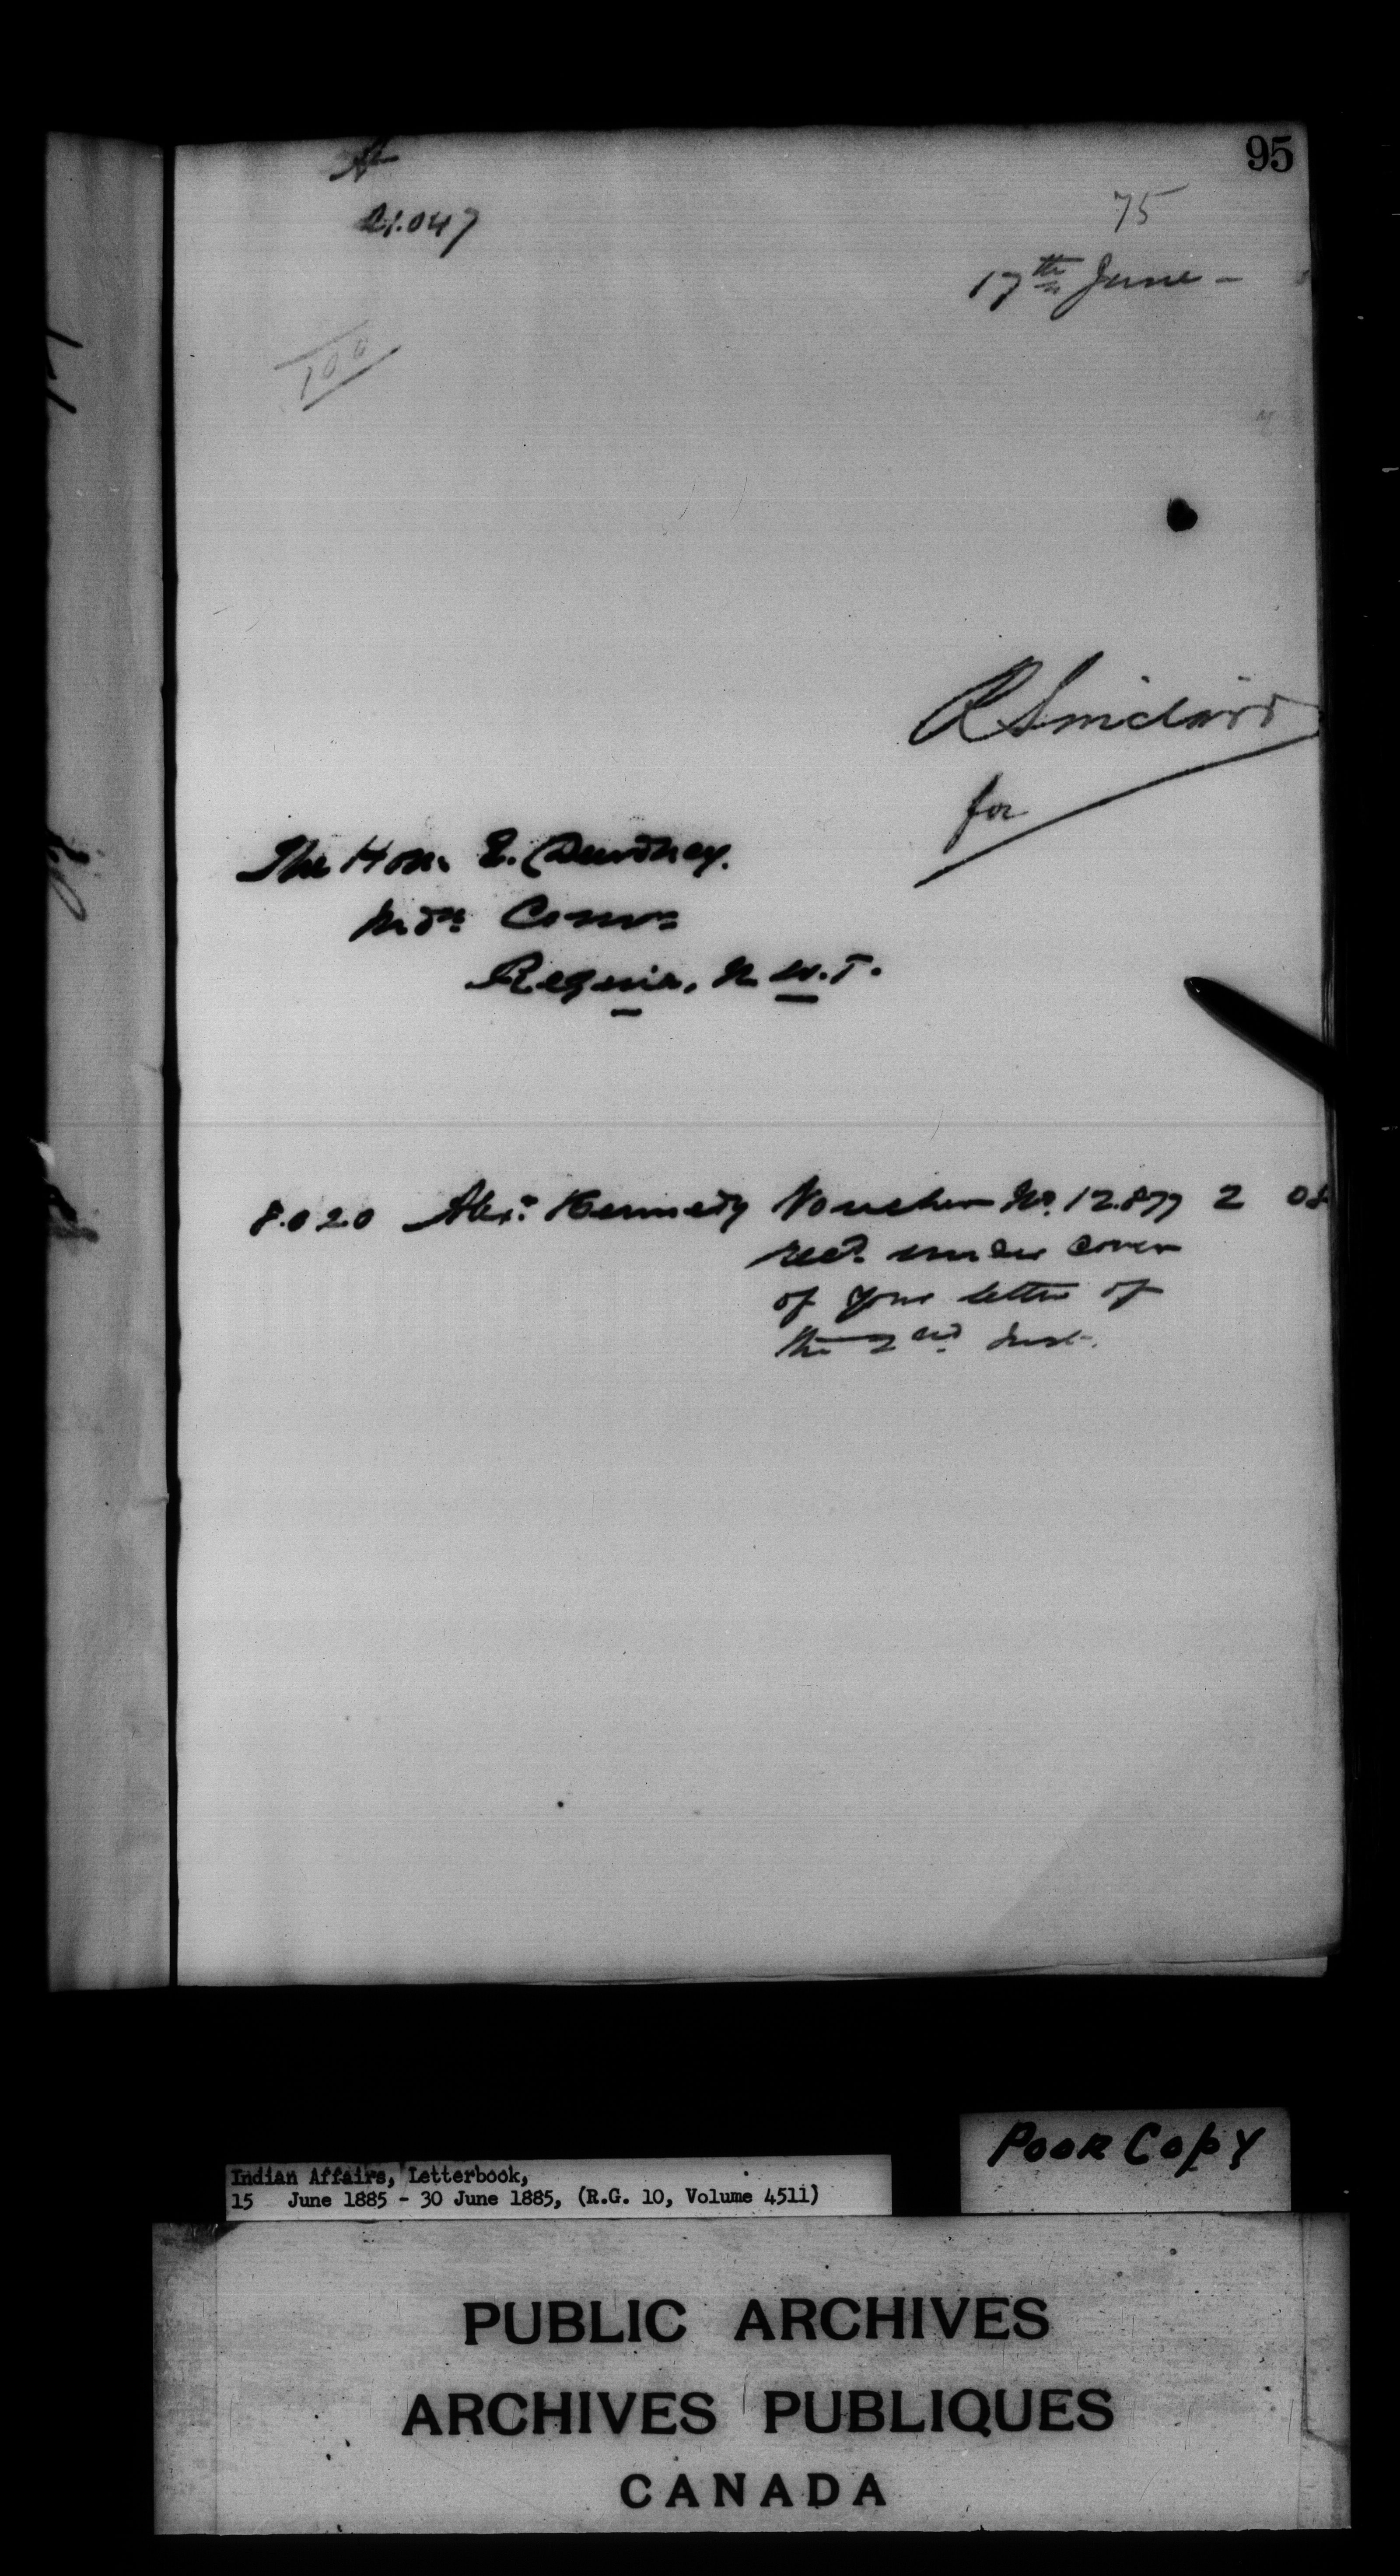 95
75
21.047
17th June -
100
R Sinclair
for
The Hon. E. Dewdney.
Indn Commr
Regina, N.W.T.
8.020 Alexr Kennedy Voucher No. 12.877 2 08
recd. under cover
of your letter of
the 2nd Inst.
Poor Copy
Indian Affairs, Letterbook,
15 June 1885 - 30 June 1885, (R.G. 10, Volume 4511)
PUBLIC ARCHIVES
ARCHIVES PUBLIQUES
CANADA